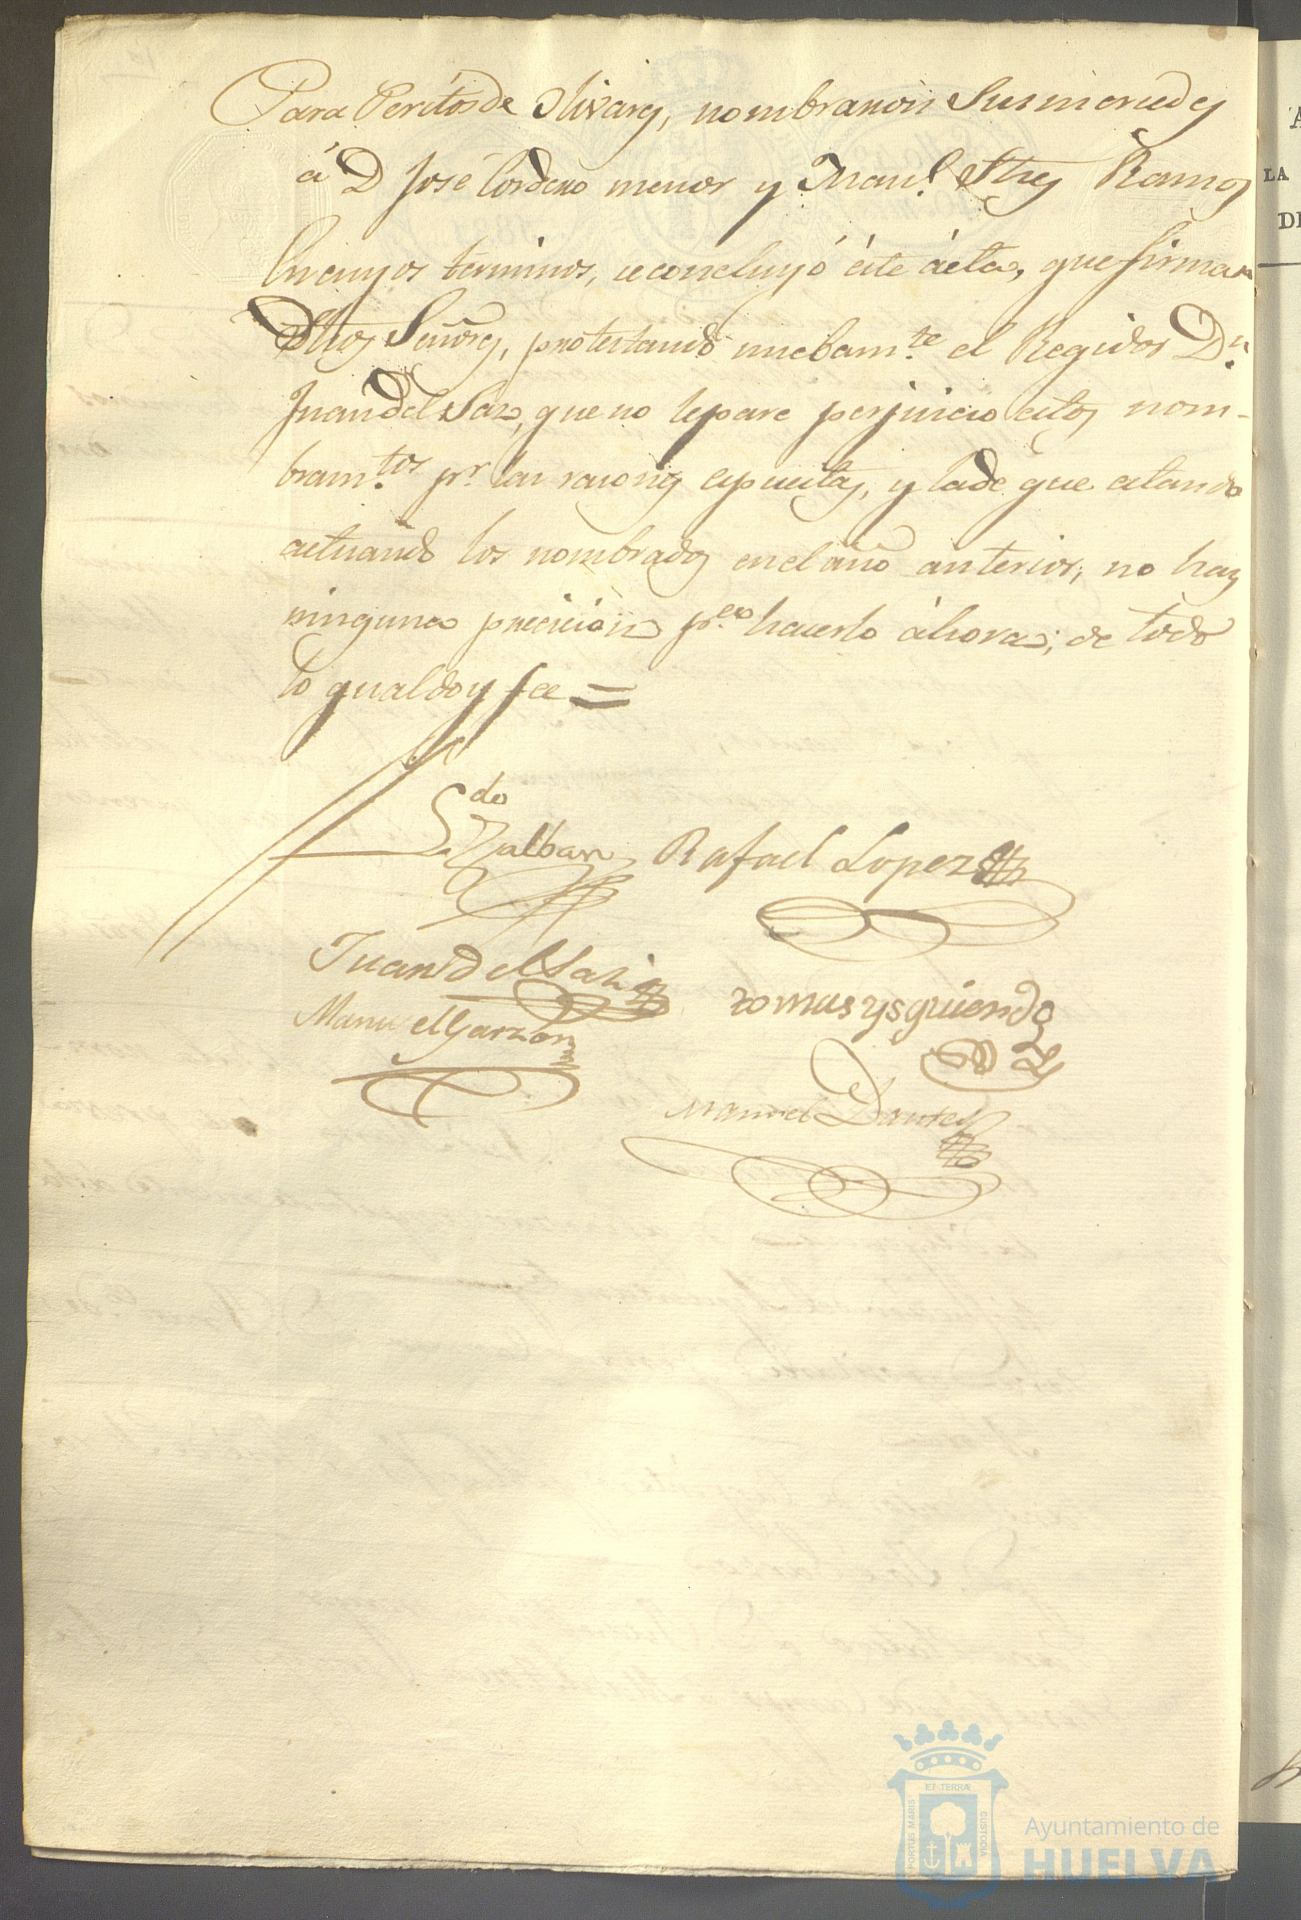 Para Peritos de Olivares, nombraron Susmercedes
á D José Cordero menor y Man.l Ramos
En cuyos terminos, se concluyó este ácta, que firman
Dhos Señores, protestando nuebam.te el Regidor D.n
Juan del Saz, que no lepare perjuicio estos nom-
bram.tos pr. las rasones espuestas, y lade que estando
actuando los nombrados en el año anterior, no hay
ninguna precicion p.a hacerlo áhora; de todo
lo qual doy fee =
L.do
Zalban Rafael Lopez
Juan del Saz
tomas ysquierdo
Manuel Garzon
Manuel Dante
PORTUS MARIS
ET TERRÆ
CUSTODIA
Ayuntamiento de
HUELVA
A
LA
DE